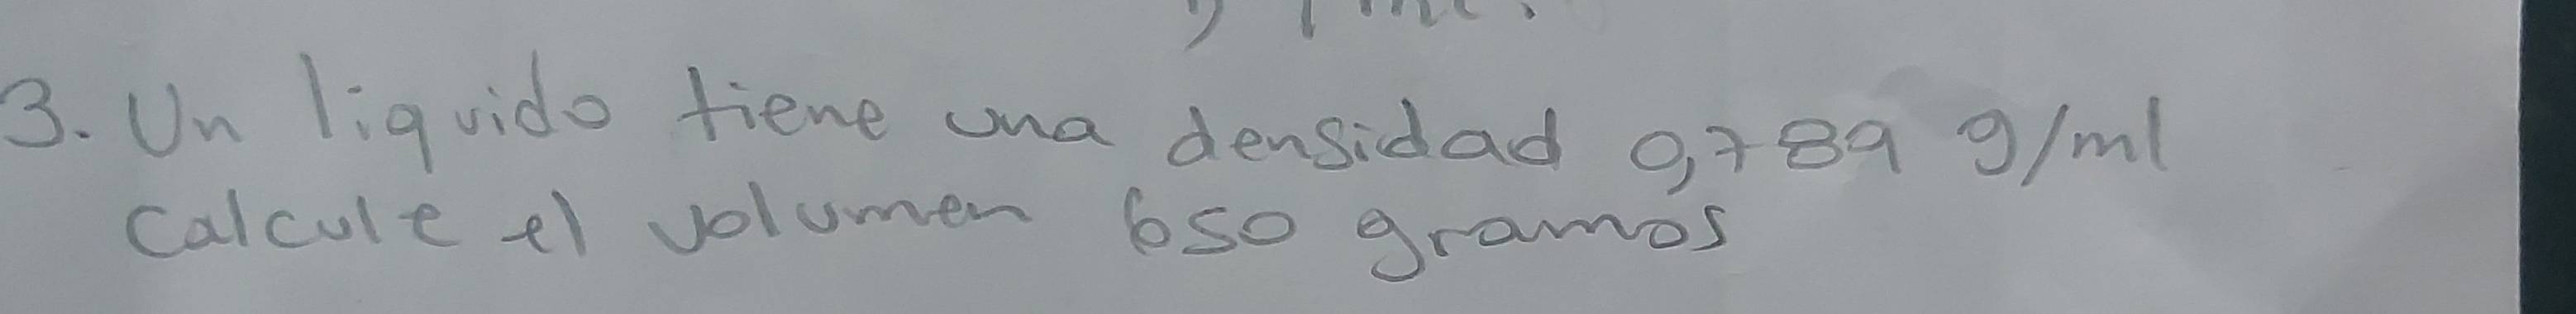 3. Un liquido tiene una densidad 0,789 g/ml
calcule el volumen 650 gramos